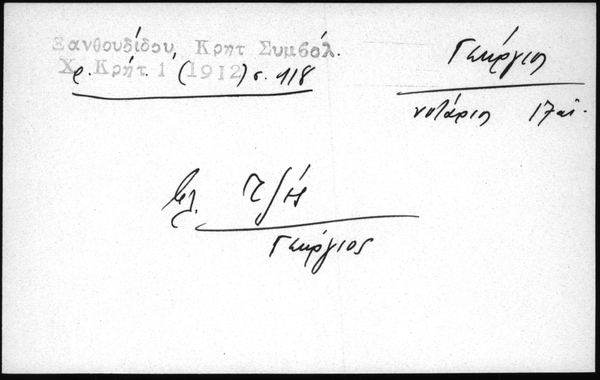 Ξανθουδίδου, Κρητ Συμβόλ.
Χ. Κρήτ. 1 (1912) σ. 118
Γεώργιος
νοτάριος 17 αἰ.
βλ.
Γεώργιος